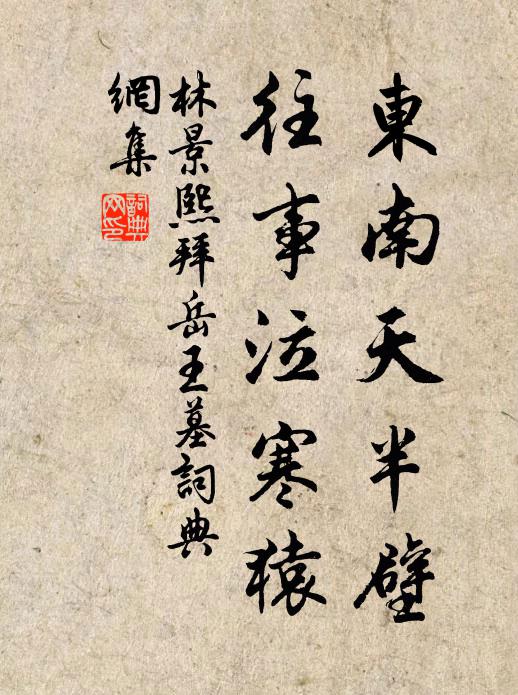 東南天半壁
往事泣寒猿
林景熙拜岳王墓詞典
網集
詞典
网印